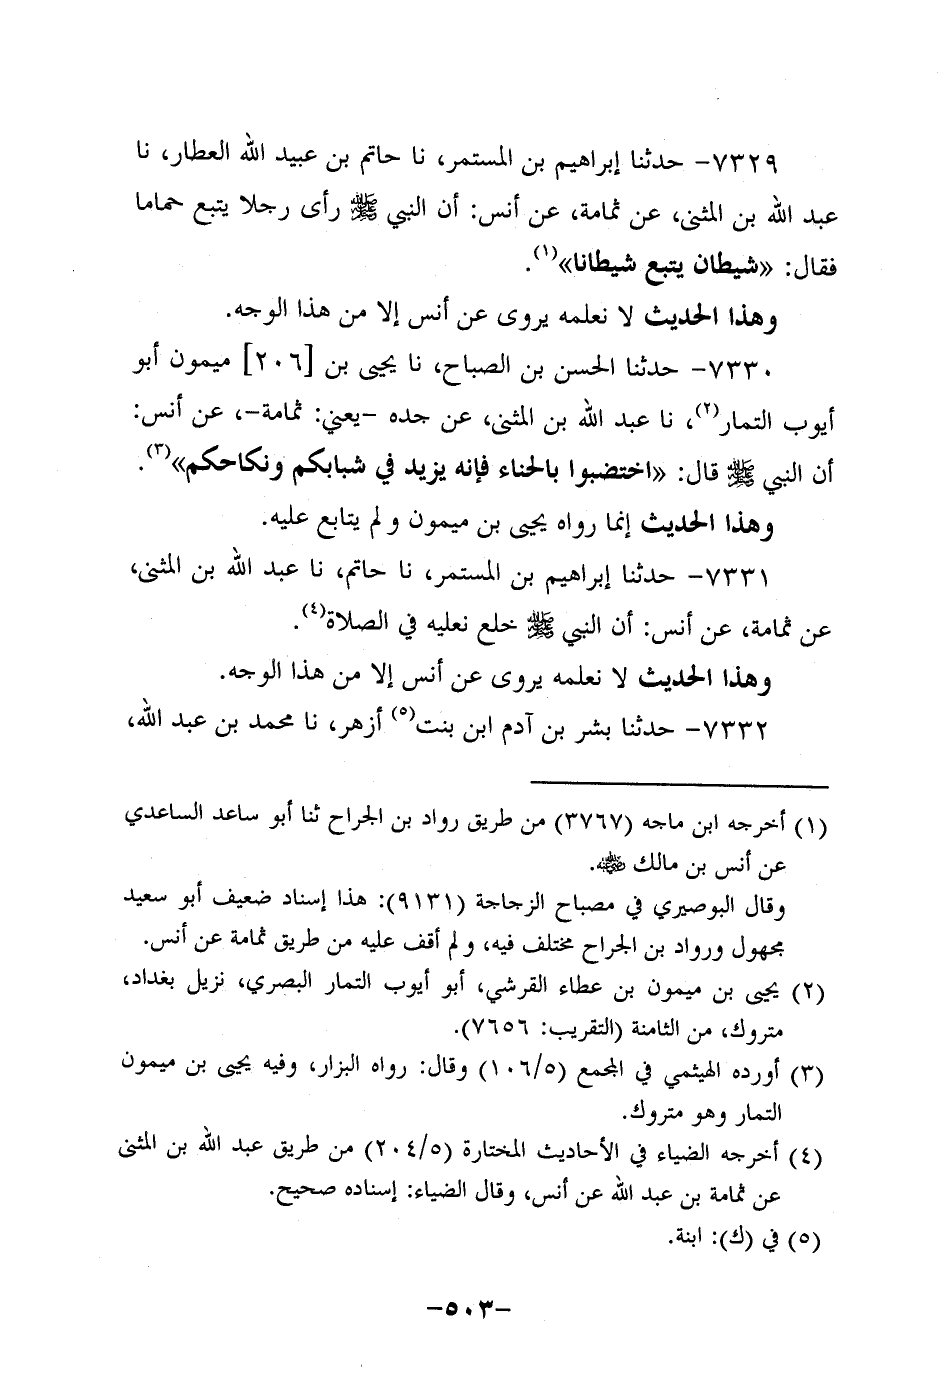 ٧٣٢٩- حدثنا إبراهيم بن المستمر، نا حاتم بن عبيد الله العطار، نا
عبد الله بن المثنى، عن ثمامة، عن أنس: أن النبي ﷺ رأى رجلا يتبع حماما
فقال: «شيطان يتبع شيطانا»(١).
وهذا الحديث لا نعلمه يروى عن أنس إلا من هذا الوجه.
٧٣٣٠- حدثنا الحسن بن الصباح، نا يحيى بن [٢٠٦] ميمون أبو
أيوب التمار(٢)، نا عبد الله بن المثنى، عن جده -يعني: ثمامة-، عن أنس:
أن النبي ﷺ قال: «اختضبوا بالحناء فإنه يزيد في شبابكم ونكاحكم»(٣).
وهذا الحديث إنما رواه يحيى بن ميمون ولم يتابع عليه.
٧٣٣١- حدثنا إبراهيم بن المستمر، نا حاتم، نا عبد الله بن المثنى،
عن ثمامة، عن أنس: أن النبي ﷺ خلع نعليه في الصلاة(٤).
وهذا الحديث لا نعلمه يروى عن أنس إلا من هذا الوجه.
٧٣٣٢- حدثنا بشر بن آدم ابن بنت(٥) أزهر، نا محمد بن عبد الله،
(١) أخرجه ابن ماجه (٣٧٦٧) من طريق رواد بن الجراح ثنا أبو ساعد الساعدي
عن أنس بن مالك رضي الله عنه.
وقال البوصيري في مصباح الزجاجة (٩١٣١): هذا إسناد ضعيف أبو سعيد
مجهول ورواد بن الجراح مختلف فيه، ولم أقف عليه من طريق ثمامة عن أنس.
(٢) يحيى بن ميمون بن عطاء القرشي، أبو أيوب التمار البصري، نزيل بغداد،
متروك، من الثامنة (التقريب: ٧٦٥٦).
(٣) أورده الهيثمي في المجمع (١٠٦/٥) وقال: رواه البزار، وفيه يحيى بن ميمون
التمار وهو متروك.
(٤) أخرجه الضياء في الأحاديث المختارة (٢٠٤/٥) من طريق عبد الله بن المثنى
عن ثمامة بن عبد الله عن أنس، وقال الضياء: إسناده صحيح.
(٥) في (ك): ابنة.
-٥٠٣-